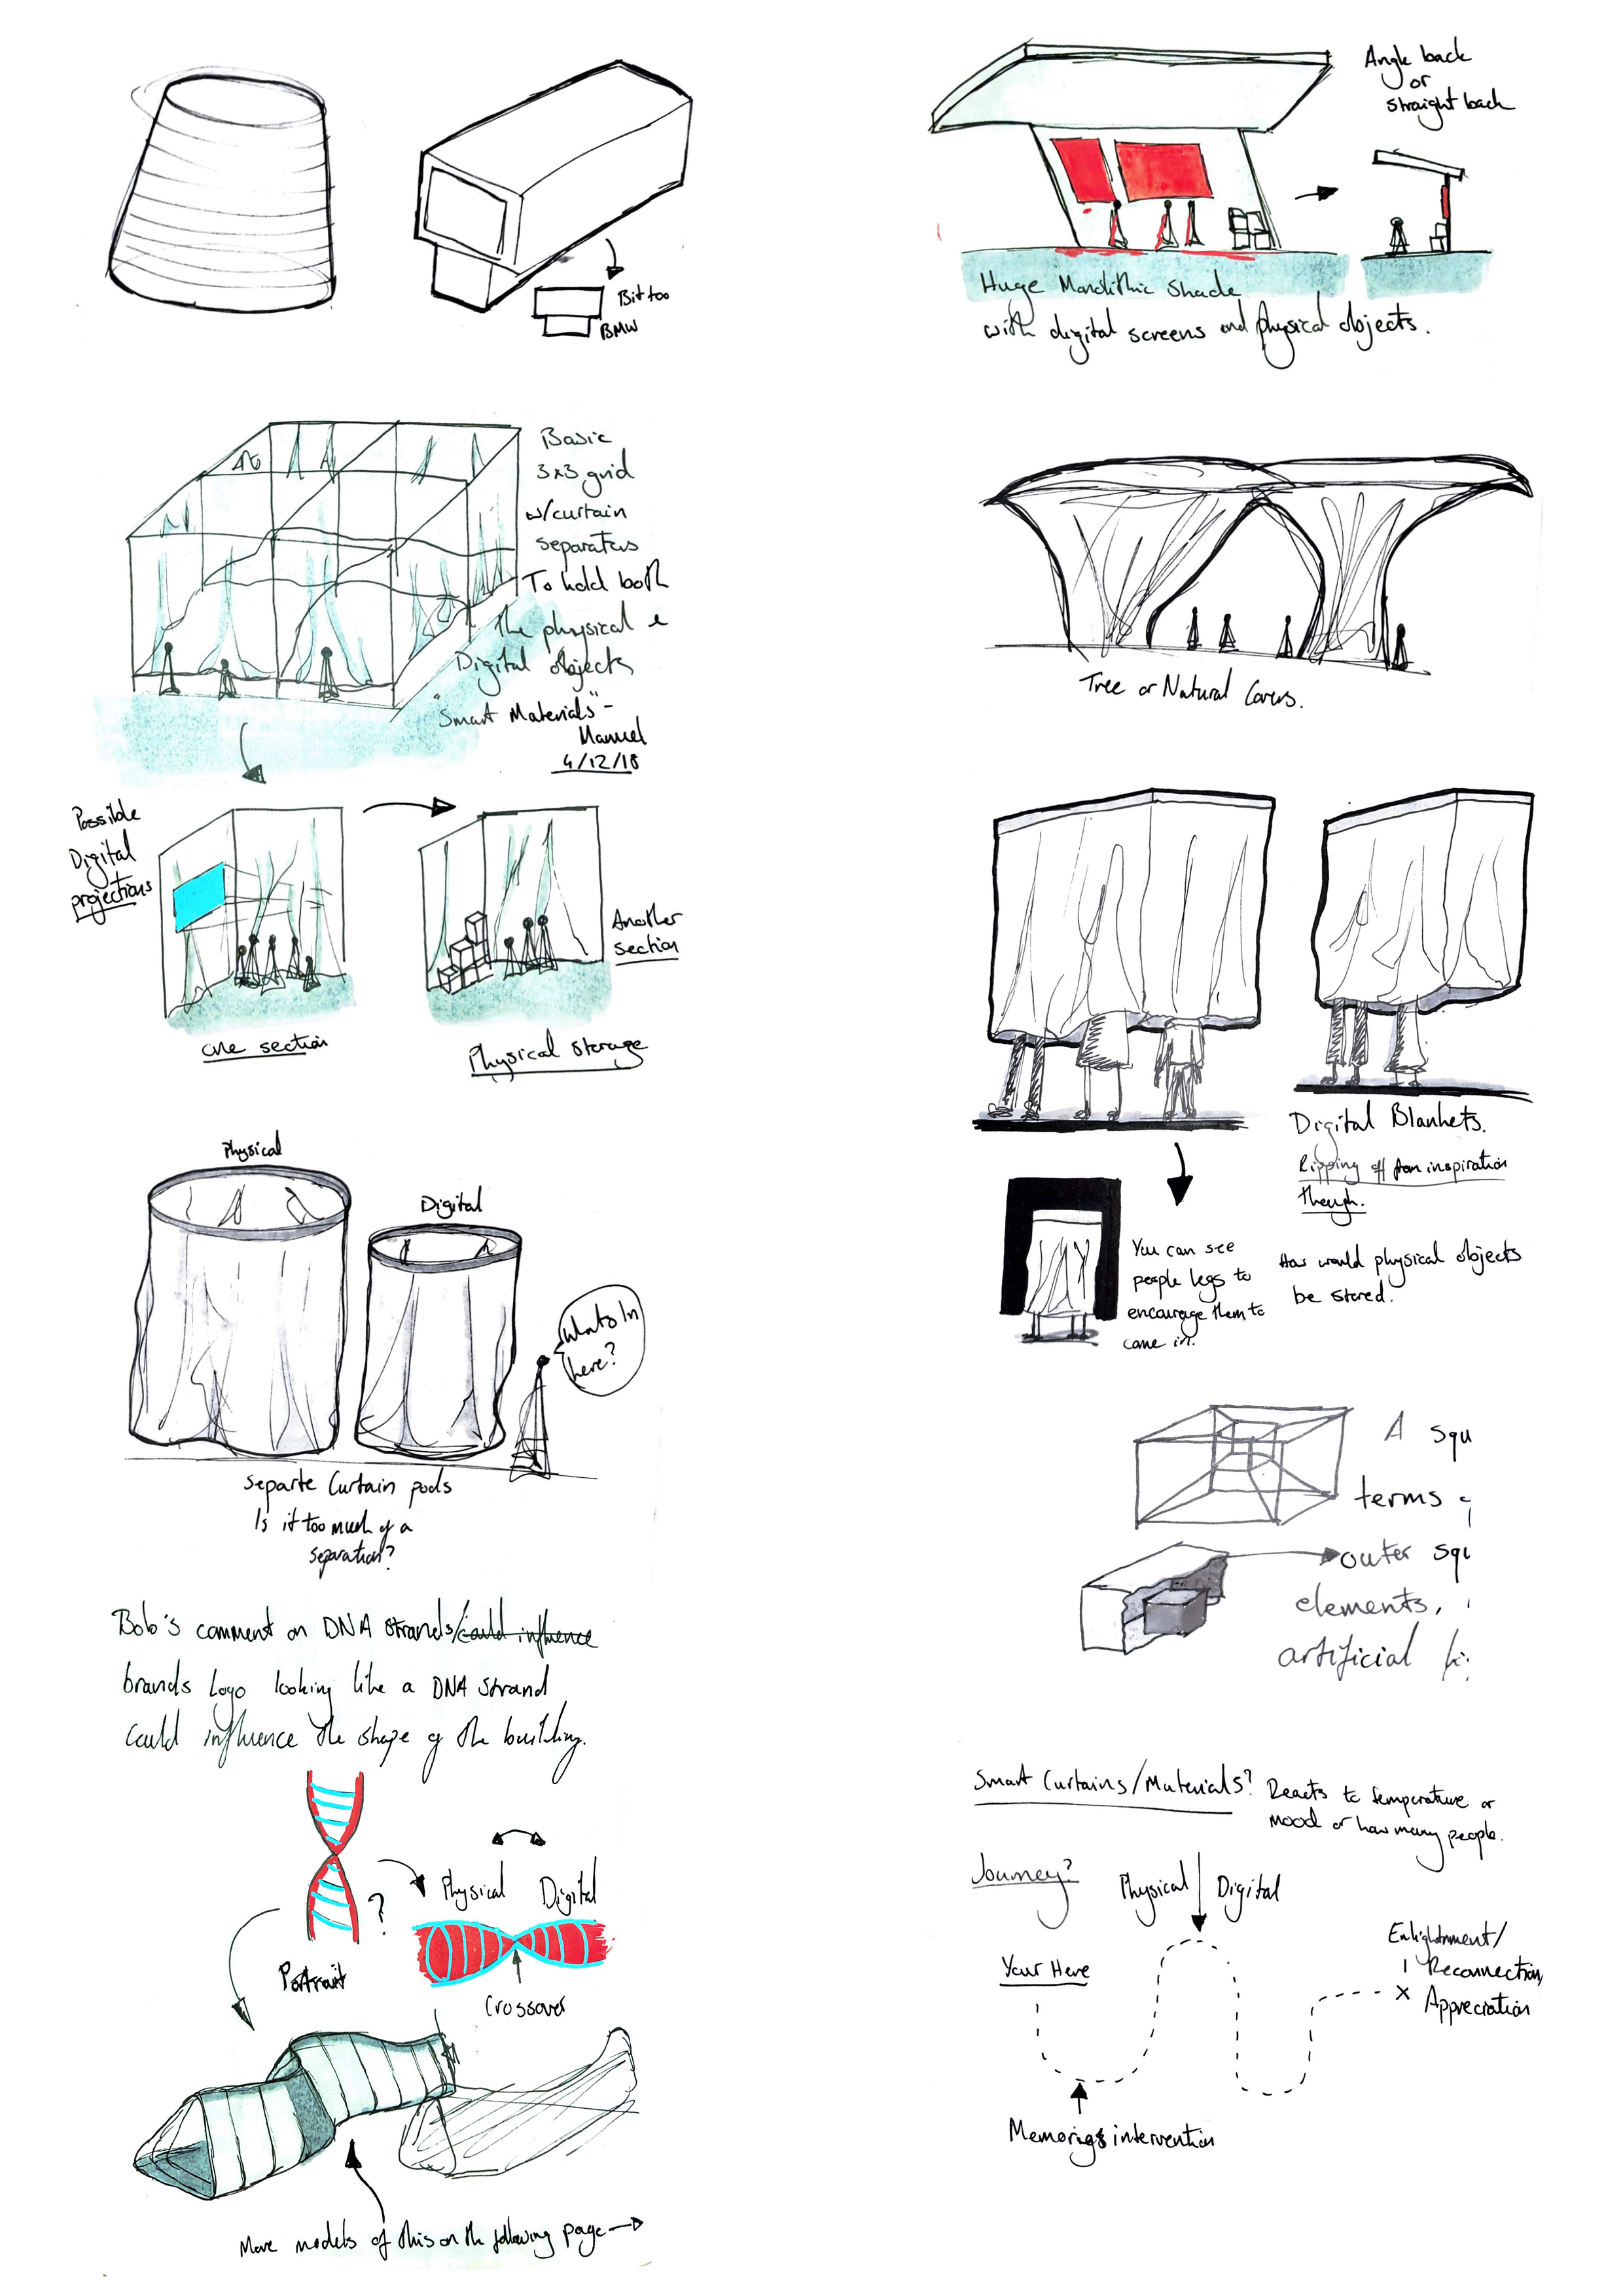 Bit too
BMW
Basic
3x3 grid
w/curtain
separators
To hold both
the physical &
Digital objects
"Smart Materials" -
Manuel
4/12/18
Possible
Digital
projections
one section
Another
section
Physical storage
Physical
Digital
Whats In
here?
Separte Curtain pods
Is it too much of a
separation?
Bob's comment on DNA strands/could influence
brands Logo looking like a DNA strand
Could influence the shape of the building.
?
Portrait
Physical Digital
Crossover
More models of this on the following page
Angle back
or
straight back
Huge Monolithic Shade
with digital screens and physical objects.
Tree or Natural Covers.
Digital Blankets.
Ripping off from inspiration
though.
You can see
people legs to
encourage them to
come in.
How would physical objects
be stored.
A squ
terms
outer squ
elements,
artificial
Smart Curtains/Materials? Reacts to temperature or
mood or how many people.
Journey?
Physical Digital
Your Here
Enlightnment/
Reconnection,
Appreciation
x
intervention